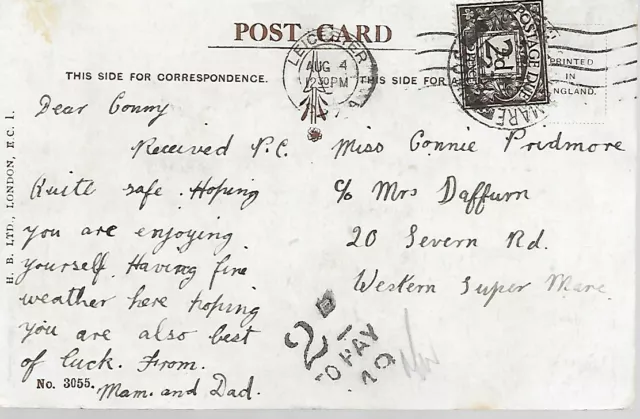 POST CARD
THIS SIDE FOR CORRESPONDENCE.
THIS SIDE FOR A
PRINTED
IN
ENGLAND.
LEICESTER
AUG 4
12 30 PM
POSTAGE DUE
2d
MARE
Dear Conny
Received P.C.
Quite safe. Hoping
you are enjoying
yourself. Having fine
weather here hoping
you are also best
of luck. From.
Mam. and Dad.
Miss Connie Pridmore
c/o Mrs Daffurn
20 Severn Rd.
Western Super Mare.
2D
TO PAY
No. 3055.
H. B. LTD., LONDON, E.C. 1.